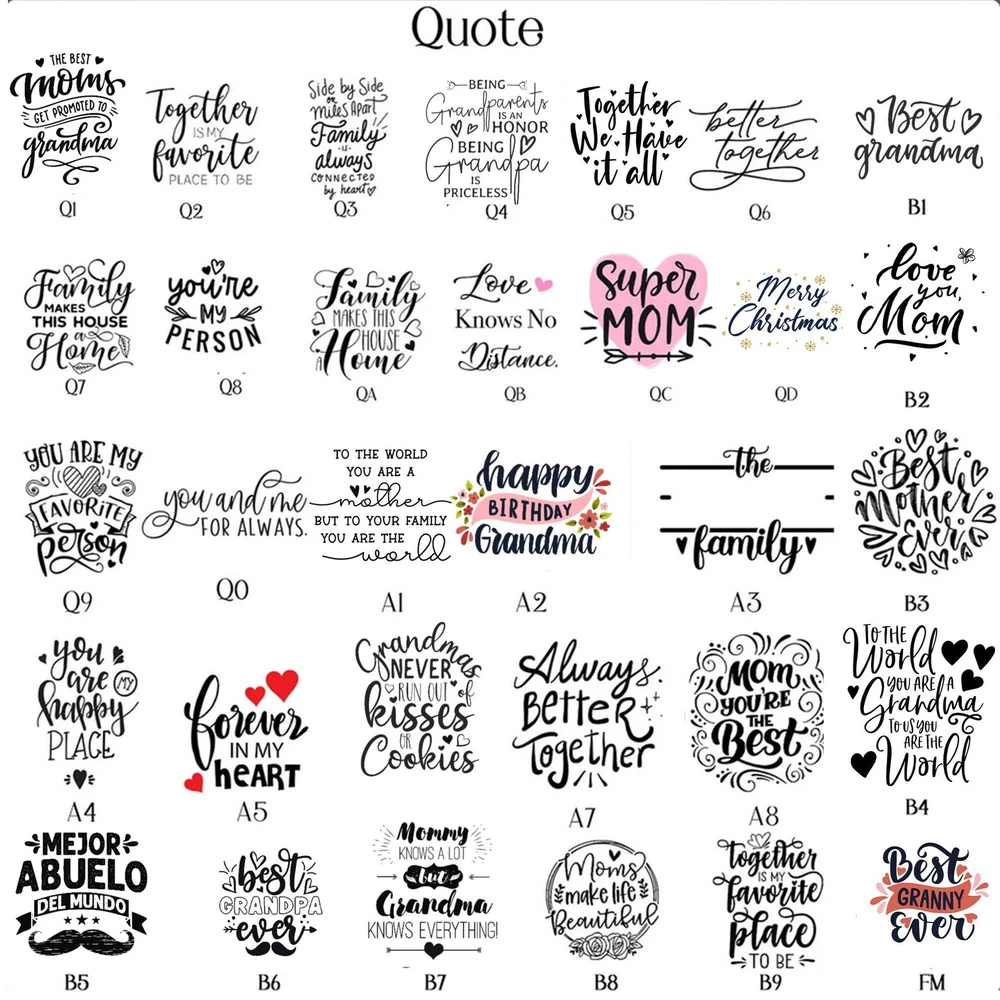 Quote
THE BEST
moms
GET PROMOTED TO
grandma
Q1
Together
IS MY
favorite
PLACE TO BE
Q2
Side by Side
OR
Miles Apart
Family
IS
always
CONNECTED
by heart
Q3
BEING
Grandparents
IS AN
HONOR
BEING
Grandpa
IS
PRICELESS
Q4
Together
We Have
it all
Q5
better
together
Q6
Best
grandma
B1
Family
MAKES
THIS HOUSE
a Home
Q7
you're
MY
PERSON
Q8
Family
MAKES THIS
HOUSE
A
Home
QA
Love
Knows No
Distance.
QB
Super
MOM
QC
Merry
Christmas
QD
love
you,
Mom
B2
YOU ARE MY
FAVORITE
person
Q9
you and me
FOR ALWAYS.
Q0
TO THE WORLD
YOU ARE A
mother
BUT TO YOUR FAMILY
YOU ARE THE
world
A1
happy
BIRTHDAY
Grandma
A2
the
family
A3
Best
Mother
Ever
B3
you
are
MY
happy
PLACE
A4
forever
IN MY
heART
A5
Grandmas
NEVER
RUN OUT of
kisses
OR
Cookies
Always
BeTTer
Together
A7
Mom
YOU'RE
THE
Best
A8
TO THE
World
YOU ARE A
Grandma
TO US YOU
ARE THE
World
B4
MEJOR
ABUELO
DEL MUNDO
B5
best
GRANDPA
ever
B6
Mommy
KNOWS A LOT
but
Grandma
KNOWS EVERYTHING!
B7
Moms
make life
Beautiful
B8
together
IS MY
favorite
place
TO BE
B9
Best
GRANNY
Ever
FM